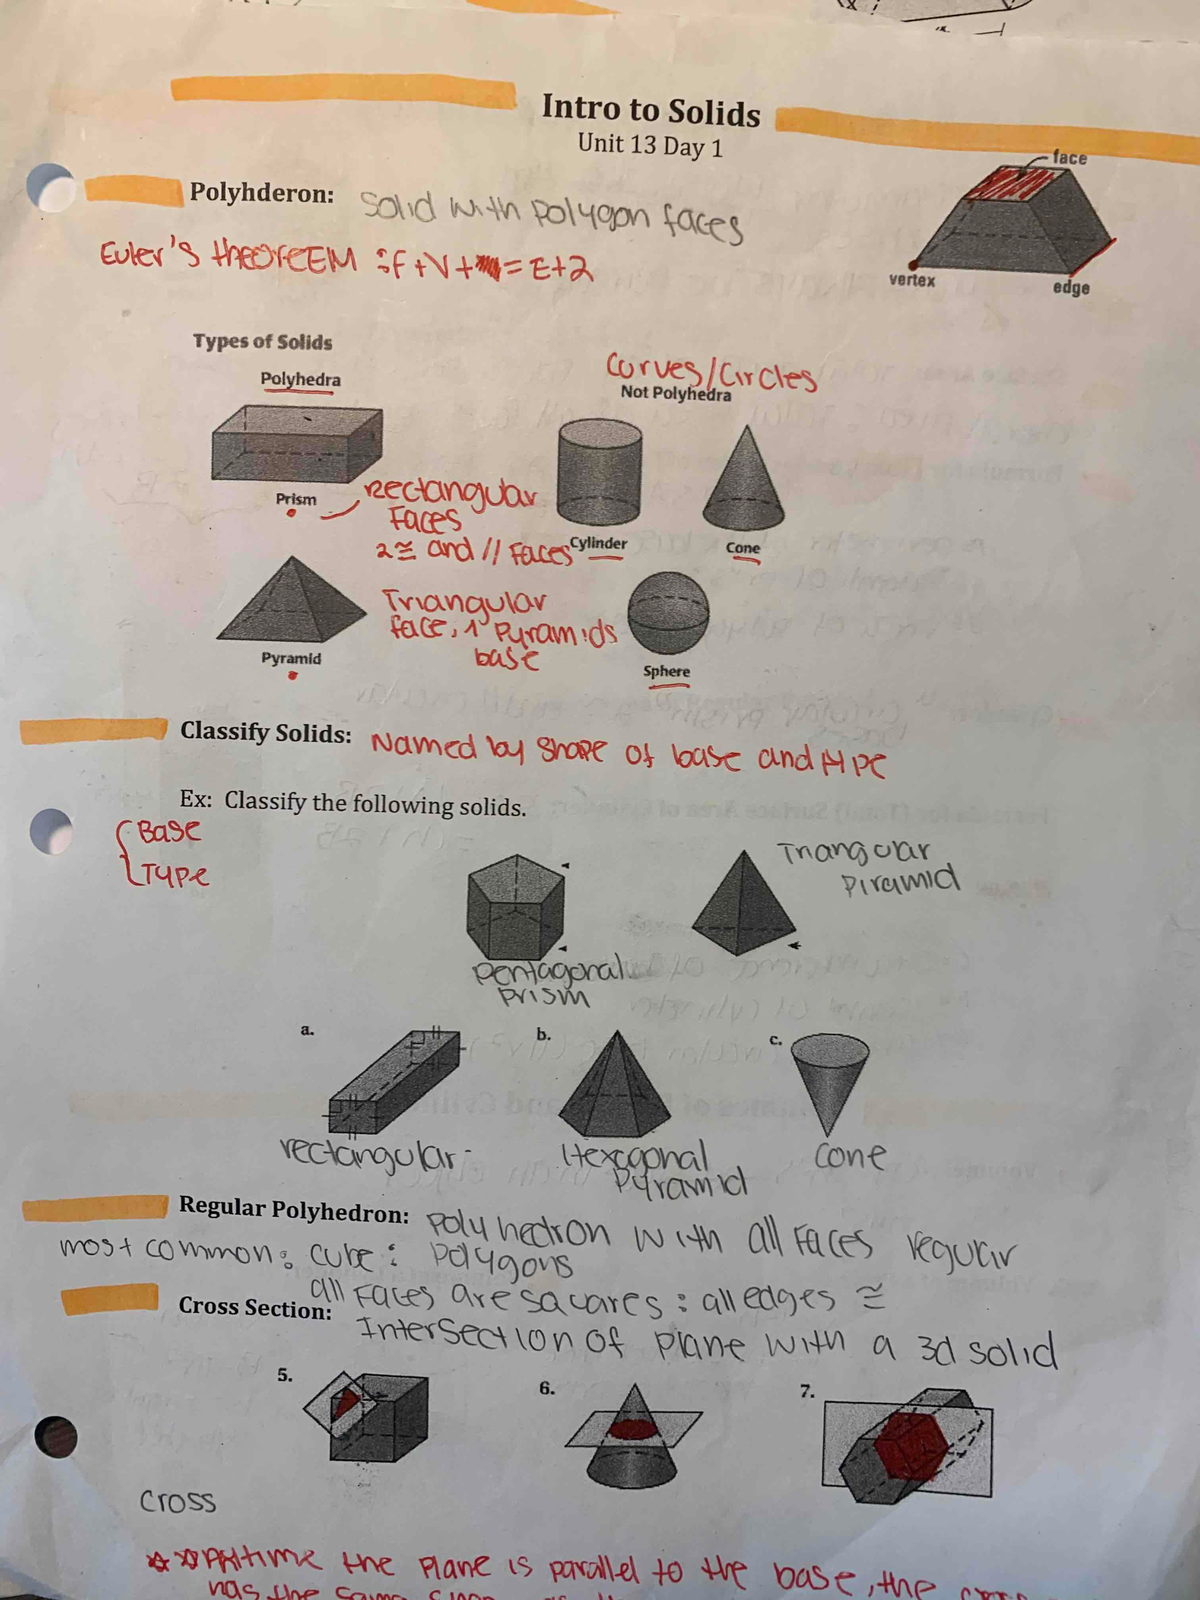 Intro to Solids
Unit 13 Day 1
face
Polyhderon: Solid with polygon faces
Euler's theorEEM : F + V + = E + 2
vertex
edge
Types of Solids
Polyhedra
Curves/Circles
Not Polyhedra
Prism
Rectangular
Faces
2 ≅ and // Faces
Cylinder
Cone
Triangular
face, 1 Pyramids
base
Pyramid
Sphere
Classify Solids: Named by shape of base and type
Ex: Classify the following solids.
Base
Type
Triangular
Piramid
pentagonal
prism
a.
b.
c.
rectangular
Hexagonal
Pyramid
cone
Regular Polyhedron: polyhedron with all Faces regular
most common: cube: polygons
all Faces are sqcuares : all edges ≅
Cross Section:
Intersection of plane with a 3d solid
5.
6.
7.
cross
the plane is parallel to the base, the
has the same